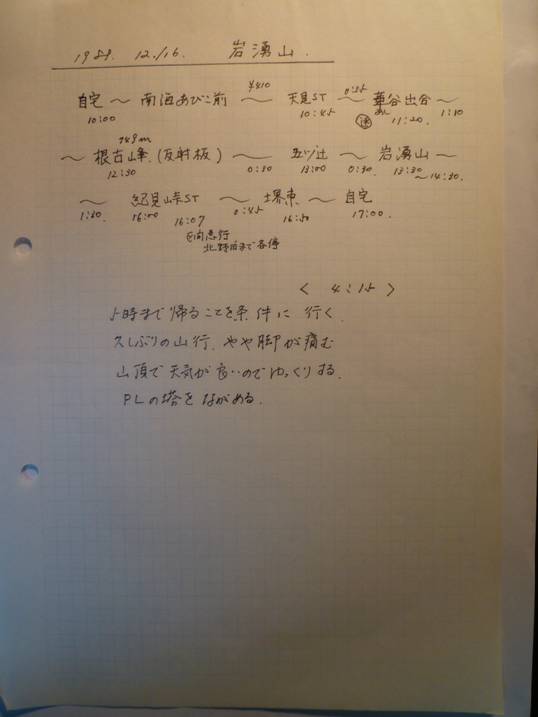 1989. 12./16. 岩湧山.
自宅 〜 南海あびこ前 〜 ¥410 天見ST 〜 0:35 華谷出合 〜
10:00 10:45 11:20. 1:10
〜 根古峰 749m (反射板) 〜 五ツ辻 〜 岩湧山 〜
12:30 0:30 13:00 0:30. 13:30 〜14:30.
〜 紀見峠ST 〜 堺東 〜 自宅
1:30. 16:00 16:07 0:45 16:50 17:00.
区間急行
北野田まで各停
< 4:15 >
5時まで帰ることを条件に 行く.
久しぶりの山行. やや脚が痛む
山頂で天気が良いのでゆっくりする.
PLの塔をながめる.